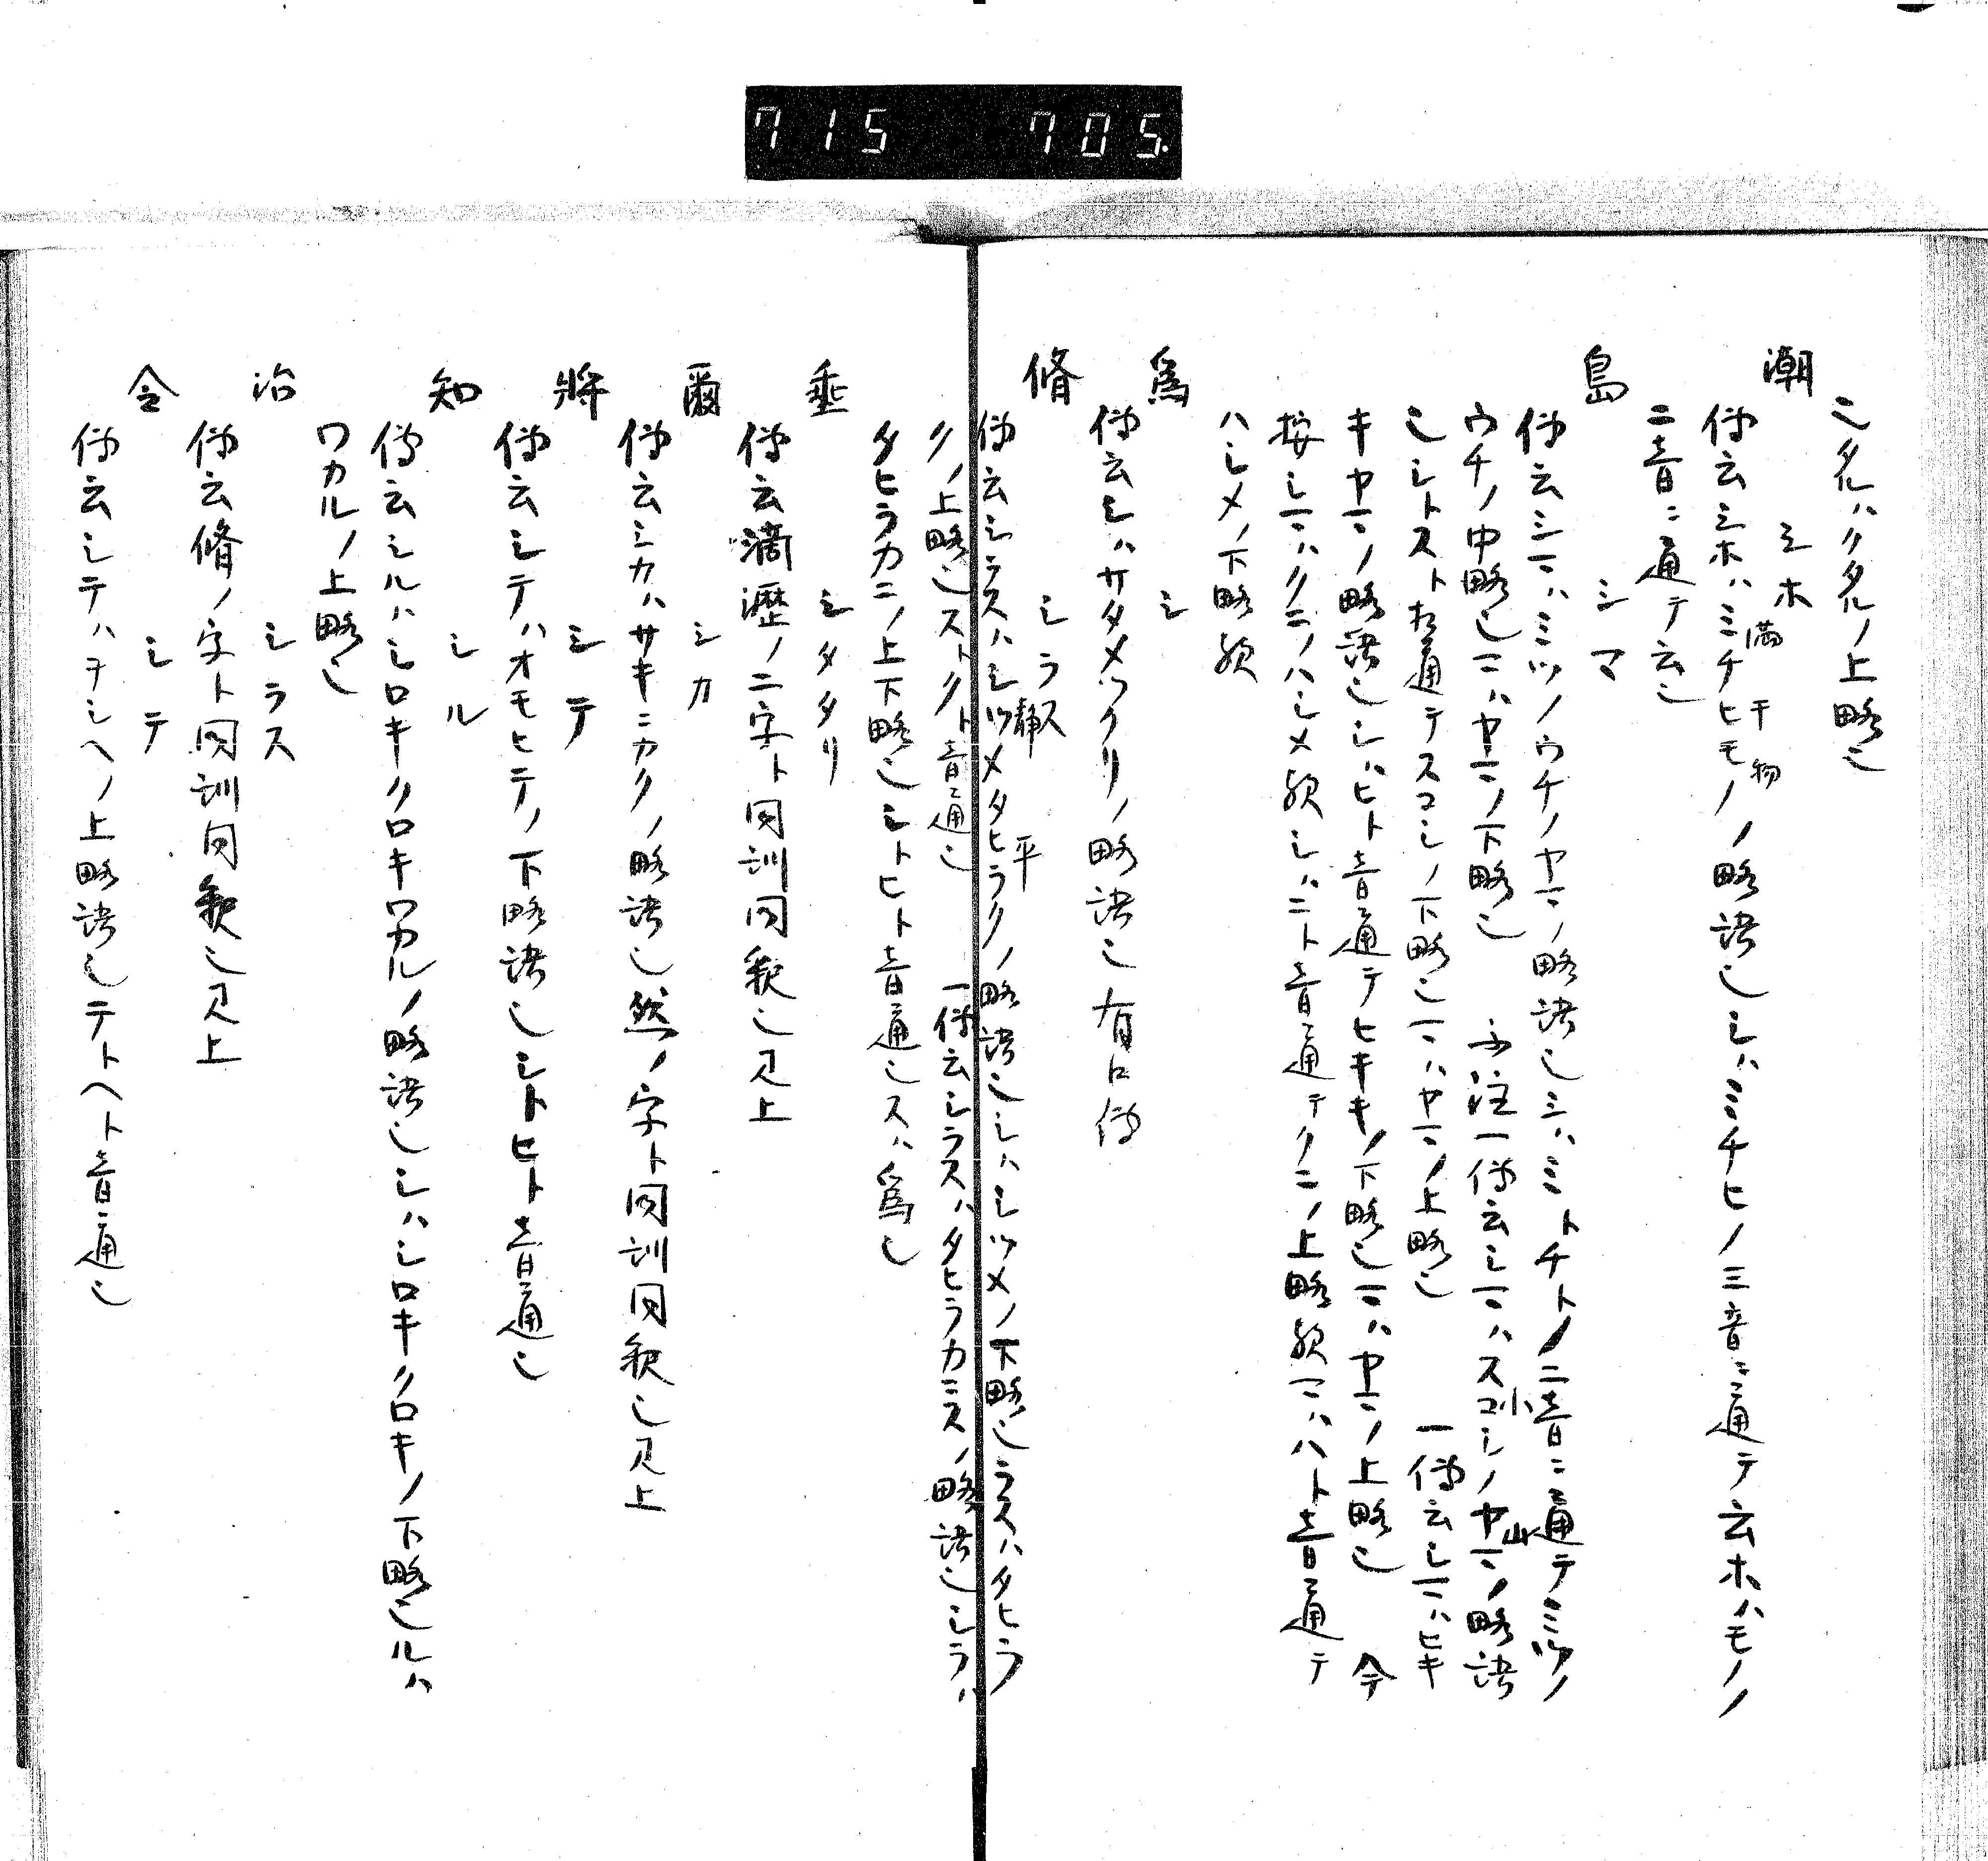 715 705.
ニタルハクタルノ上略也
潮 シホ
傳云シホハミチヒモノノ略語也シハミチヒノ三音ニ通テ云ホハモノノ
満 干 物
二音ニ通テ云也
島 シマ
傳云シマハミツノウチノヤマノ略語也シハミトチトノ二音ニ通テミツノ
ウチノ中略也マハヤマノ下略也 一傳云シマハスコシノヤマノ略語
小 山
也シトスト通テスコシノ下略也マハヤマノ上略也 一傳云シマハヒキ
キヤマノ略語也シハヒト音通テヒキキノ下略也マハヤマノ上略也 今
按シマハクニノハシメ歟シハニト音通テクニノ上略歟マハハト音通テ
ハシメノ下略歟
爲 シ
傳云シハサタメツクリノ略語也有口傳
脩 シラス
静 平
傳云シラスハシツメタヒラクノ略語也シハシツメノ下略也ラスハタヒラ
クノ上略也ストクト音通也 一傳云シラスハタヒラカニスノ略語也シラハ
タヒラカニノ上下略也シトヒト音通也スハ爲也
垂 シタタリ
傳云滴瀝ノ二字ト同訓同釈也見上
爾 シカ
傳云シカハサキニカクノ略語也然ノ字ト同訓同釈也見上
將 シテ
傳云シテハオモヒテノ下略語也シトヒト音通也
知 シル
傳云シルハシロキクロキワカルノ略語也シハシロキクロキノ下略也ルハ
ワカルノ上略也
治 シラス
傳云脩ノ字ト同訓同釈也見上
令 シテ
傳云シテハヲシヘノ上略語也テトヘト音通也